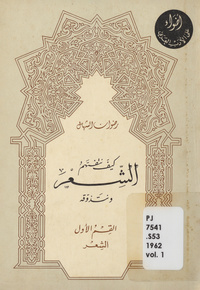 أضواء
رضوان الشهال
كيف نتفهم
الشعر
ونتذوقه
القسم الأول
الشعر
PJ
7541
.S53
1962
vol. 1